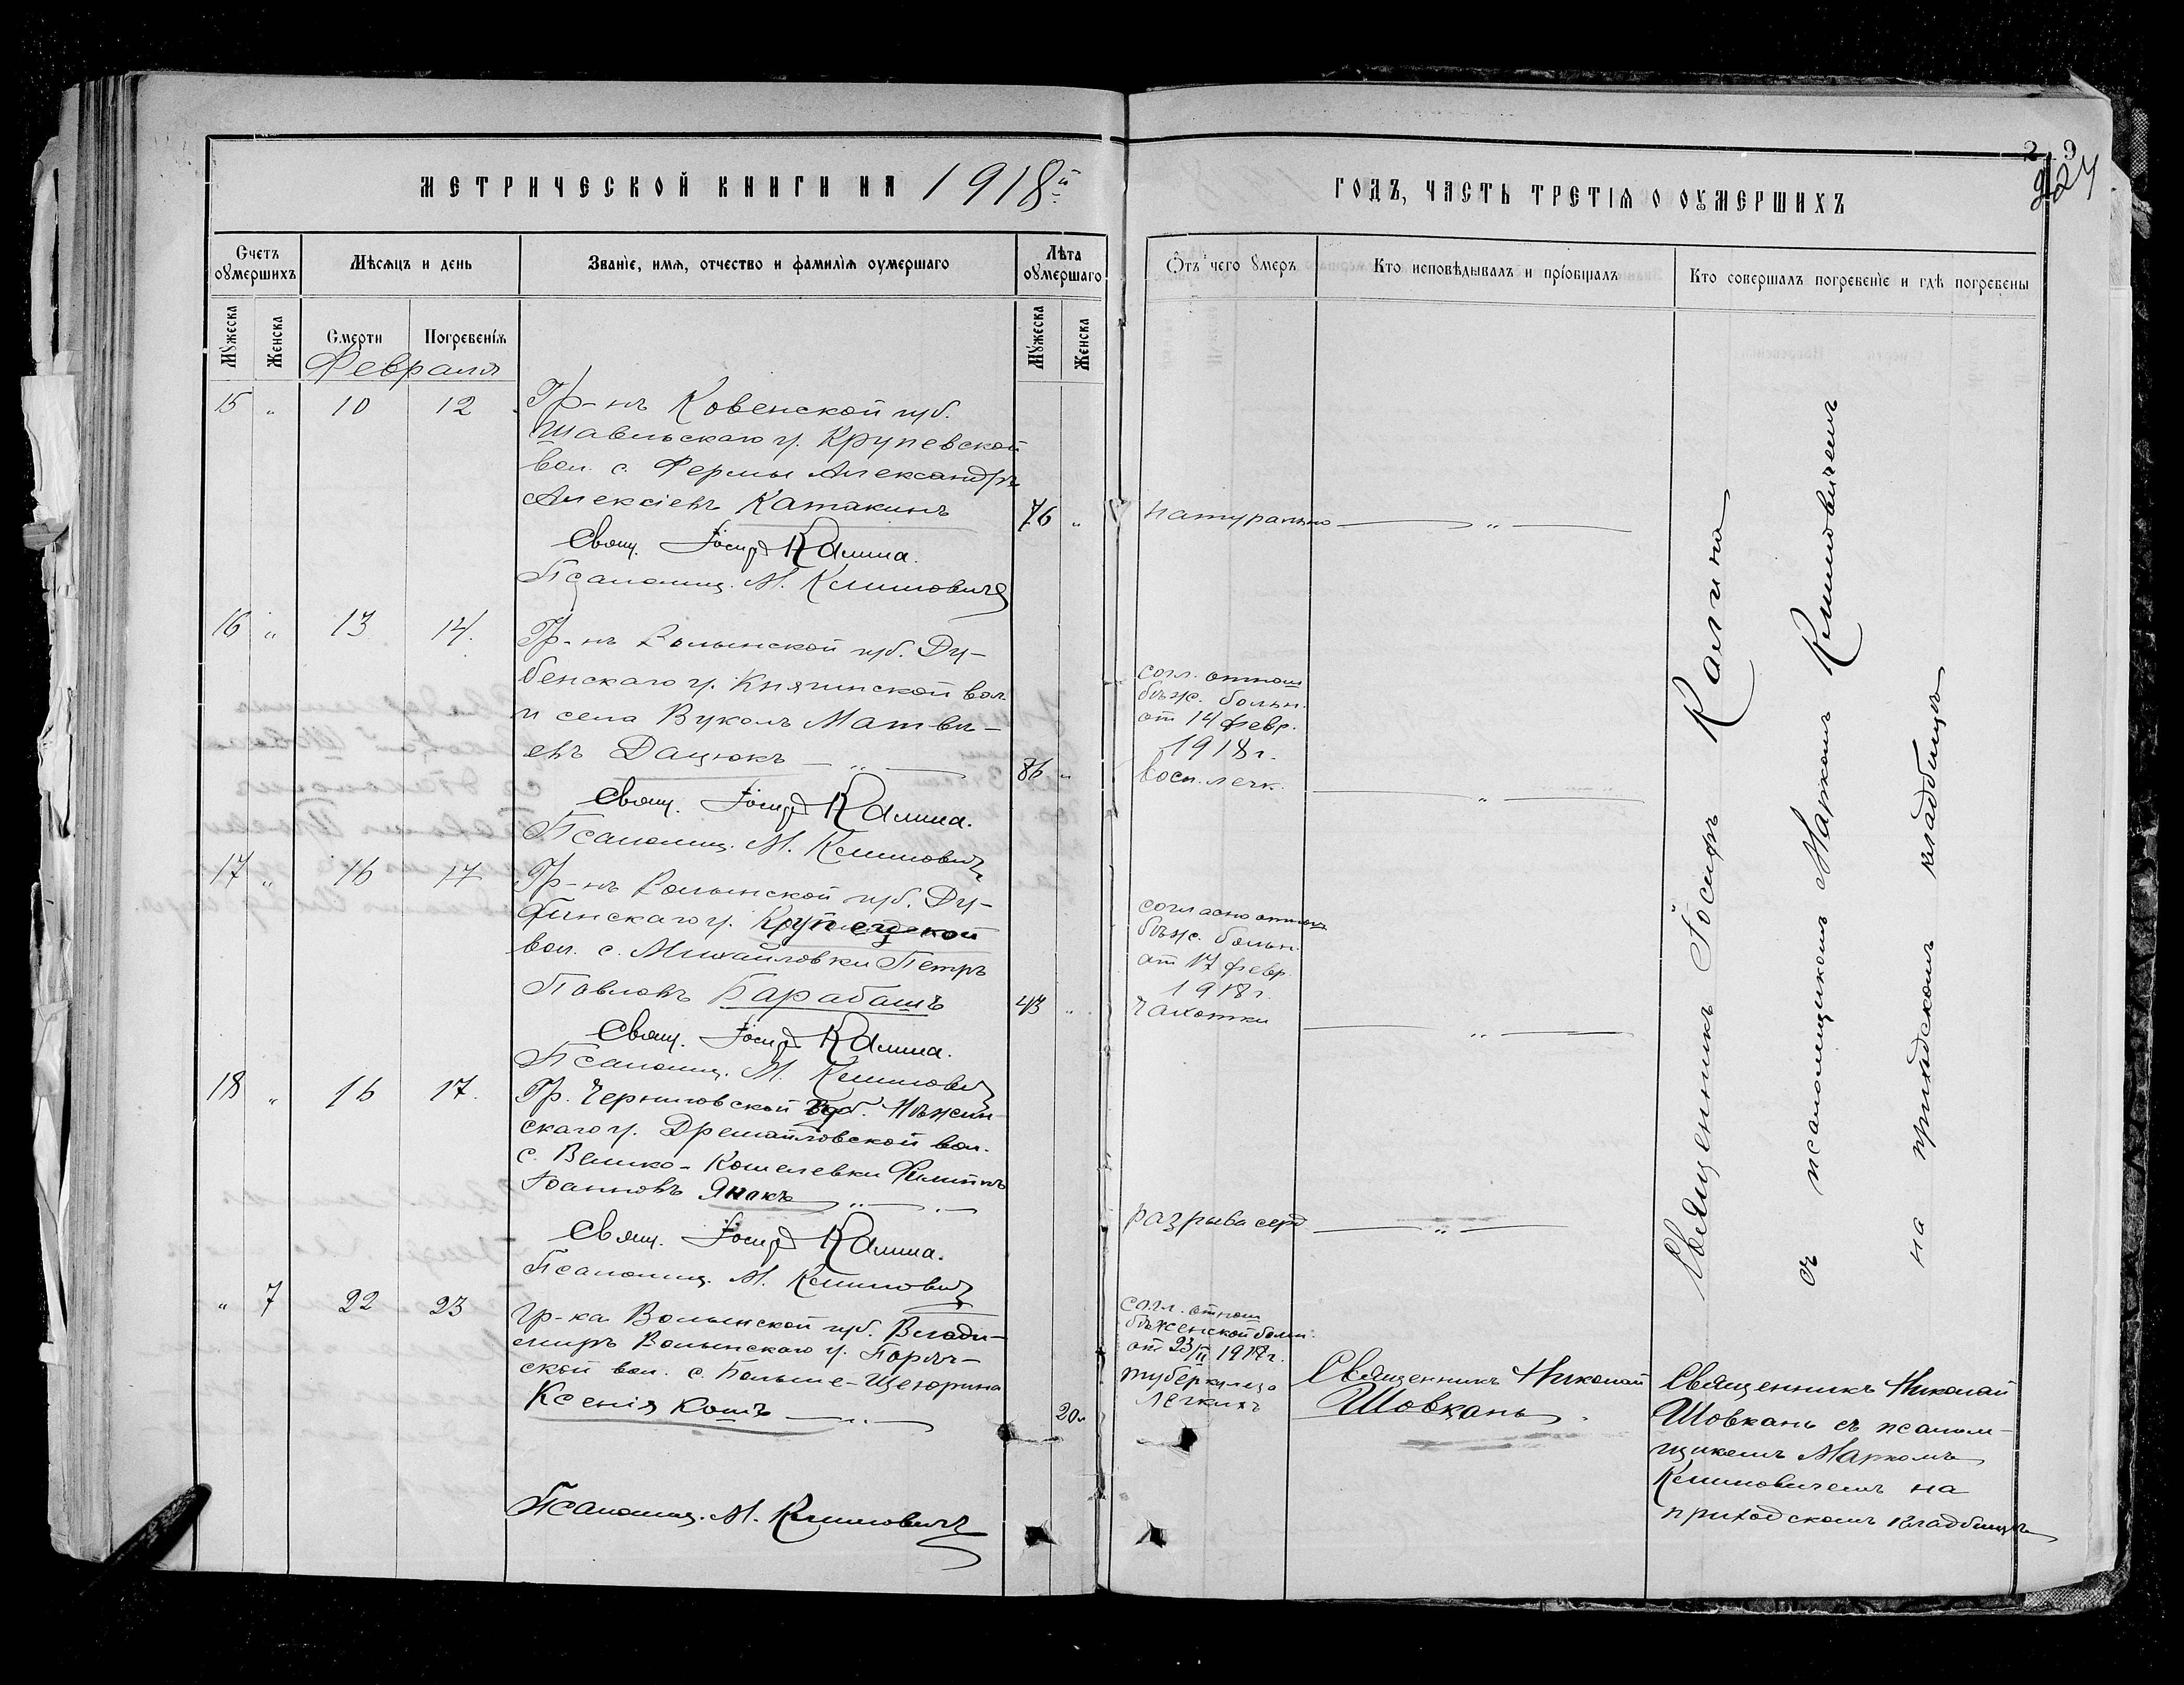 МЕТРИЧЕСКОЙ КНИГИ НА 1918й
Счетъ оумершихъ
Мѣсяцъ и день
Званіе, имя, отчество и фамилія оумершаго
Лѣта оумершаго
Мужеска
Женска
Смерти
Погребенія
Мужеска
Женска
Февраля
15 " 10 12
Гр-нъ Ковенской губ.
Шавельскаго у. Крупевской
вол. с. Фермы Александръ
Алексіевъ Катакинъ
76 "
Свящ. Іосифъ Калина.
Псаломщ. М. Климовичъ
16 " 13 14.
Гр-нъ Волынской губ. Ду-
бенскаго у. Княгинской вол.
и села Вуколъ Матвѣ-
евъ Дацюкъ — " —
86 "
Свящ. Іосифъ Калина.
Псаломщ. М. Климовичъ
17 " 16 17
Гр-нъ Волынской губ. Ду-
бинскаго у. Крупецкой
вол. с. Михайловки Петръ
Павловъ Барабашъ
43 "
Свящ. Іосифъ Калина.
Псаломщ. М. Климовичъ
18 " 16 17.
Гр. Черниговской губ. Нѣжин-
скаго у. Дремайловской вол.
с. Велико-Кошелевки Филиппъ
Іоанновъ Янакъ — " —
Свящ. Іосифъ Калина.
Псаломщ. М. Климовичъ
" 7 22 23
Гр-ка Волынской губ. Влади-
миръ Волынскаго у. Горич-
ской вол. с. Больше-Щеюрина
Ксенія Кошъ — " —
20
Псаломщ. М. Климовичъ
ГОДЪ, ЧАСТЬ ТРЕТІЯ О ОУМЕРШИХЪ
Отъ чего умеръ
Кто исповѣдывалъ и пріобщалъ
Кто совершалъ погребеніе и гдѣ погребены
натурально — " —
согл. отнош
бѣж. больн.
от 14 февр.
1918 г.
восп. легк. — " —
согласно отнош
бѣж. больн.
от 17 февр.
1918 г.
чахотки — " —
разрыва серд — " —
согл. отнош
бѣженской больн.
от 23/II 1918 г.
туберкулеза
легкихъ
Священникъ Николай
Шовкань
Священникъ Іосифъ Калина
съ псаломщикомъ Маркомъ Климовичемъ
на приходскомъ кладбищѣ
Священникъ Николай
Шовкань съ псалом-
щикомъ Маркомъ
Климовичемъ на
приходскомъ кладбищѣ